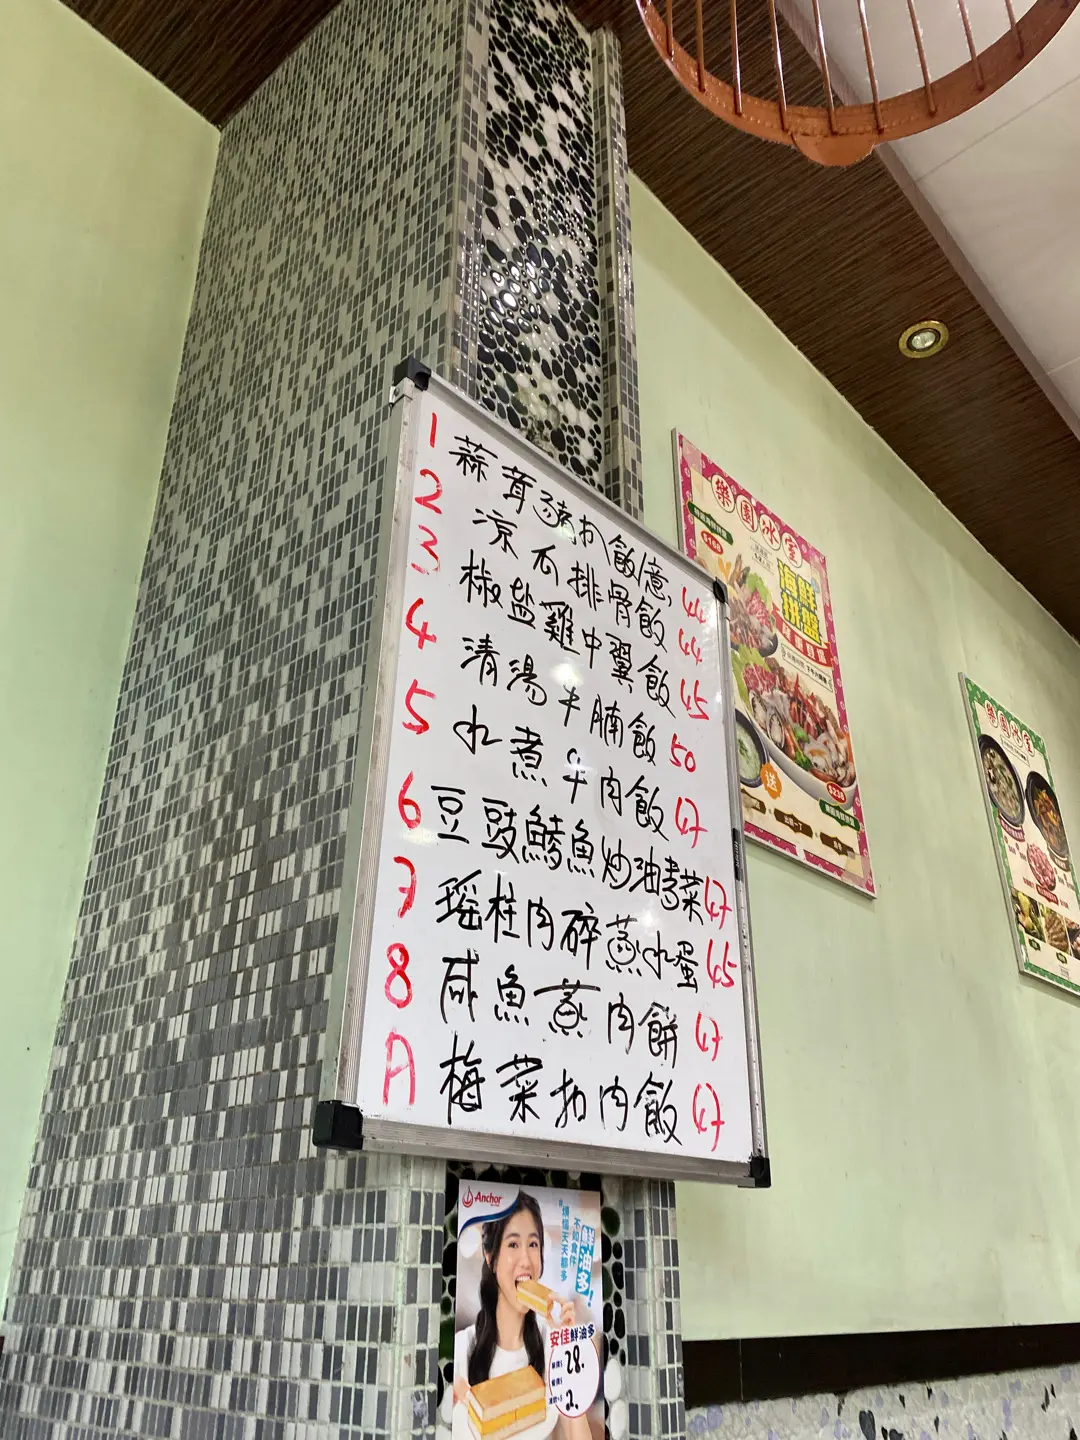 1 蒜茸豬扒飯/意 44
2 凉瓜排骨飯 44
3 椒盐雞中翼飯 45
4 清湯牛腩飯 50
5 水煮牛肉飯 47
6 豆豉鯪魚炒油麥菜 47
7 瑶柱肉碎蒸水蛋 45
8 咸魚蒸肉餅 47
A 梅菜扣肉飯 47
樂園冰室
$168
海鮮拼盤
送
$238
樂園冰室
Anchor
煩惱天天都多
不如食件
鮮油多!
安佳鮮油多
28.
2.